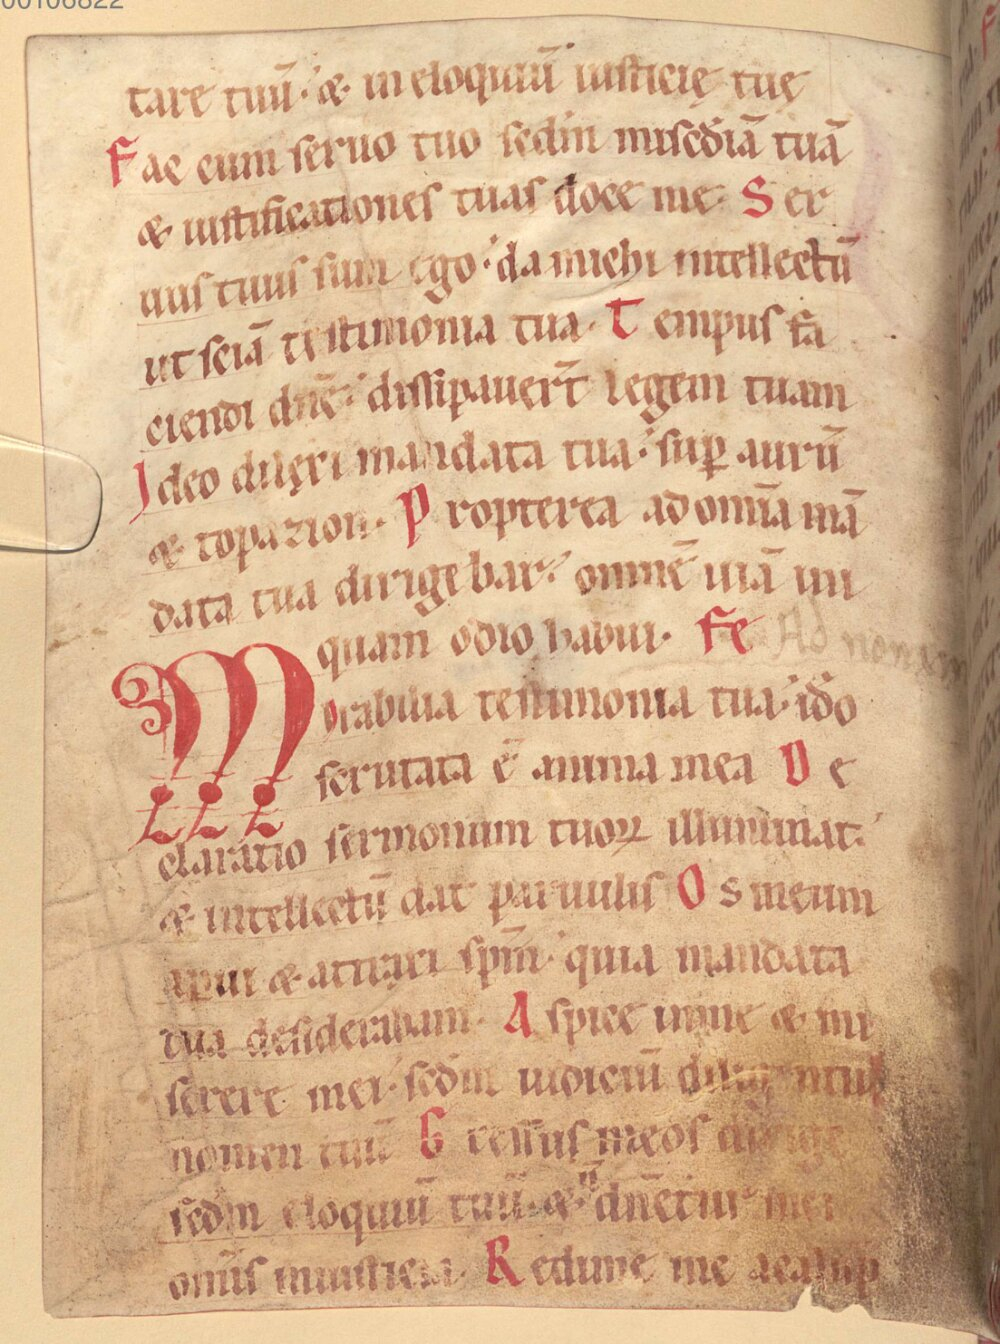 00106822
tare tuū· & in eloquiū iusticię tuę
Fac cum seruo tuo sedm̄ miscd̄iā tuā
& iustificationes tuas doce me· Ser
uus tuus sum ego· da michi intellectū
ut sciā testimonia tua· Tempus fa
ciendi dnē· dissipauert̄ legem tuam
Ideo dilexi mandata tua· sup̄ aurū
& topazion· Propterea ad om̄ia mā
data tua dirigebar· omnē uiā ini
quam odio habui· Fe Ad nonam
Mirabilia testimonia tua· id̄o
scrutata ē anima mea De
claratio sermonum tuoꝝ illuminat·
& intellectū dat paruulis Os meum
apui & attraxi sp̄m· quia mandata
tua desiderabam· Aspice in me & mi
serere mei· sedm̄ iudiciū diligentiū
nomen tuū Gressus meos dirige
sedm̄ eloquiū tuū· & n dn̄etur mei
om̄is iniusticia· Redime me a calūp